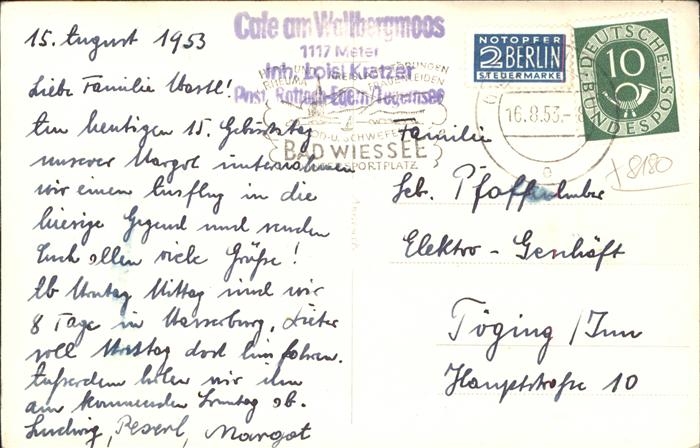 15. August 1953
Liebe Familie Wastl!
Am heutigen 15. Geburtstag
unserer Margot unternahmen
wir einen Ausflug in die
hiesige Gegend und senden
Euch allen viele Grüße!
Ab Montag Mittag sind wir
8 Tage in Wasserburg, Dieter
soll dort hinfahren.
Außerdem holen wir ihn
am kommenden Sonntag ab.
Ludwig, Margot
Cafe am Wallbergmoos
1117 Meter
Inh. Loisl Kratzer
Post Rottach-Egern/Tegernsee
JOD-U. SCHWEFELBAD
BAD WIESSEE
WINTERSPORTPLATZ
NOTOPFER
2 BERLIN
STEUERMARKE
DEUTSCHE BUNDESPOST
10
16.8.53.-8
8180
Familie
Seb. Pfaffenhuber
Elektro-Geschäft
Töging/Inn
Hauptstraße 10